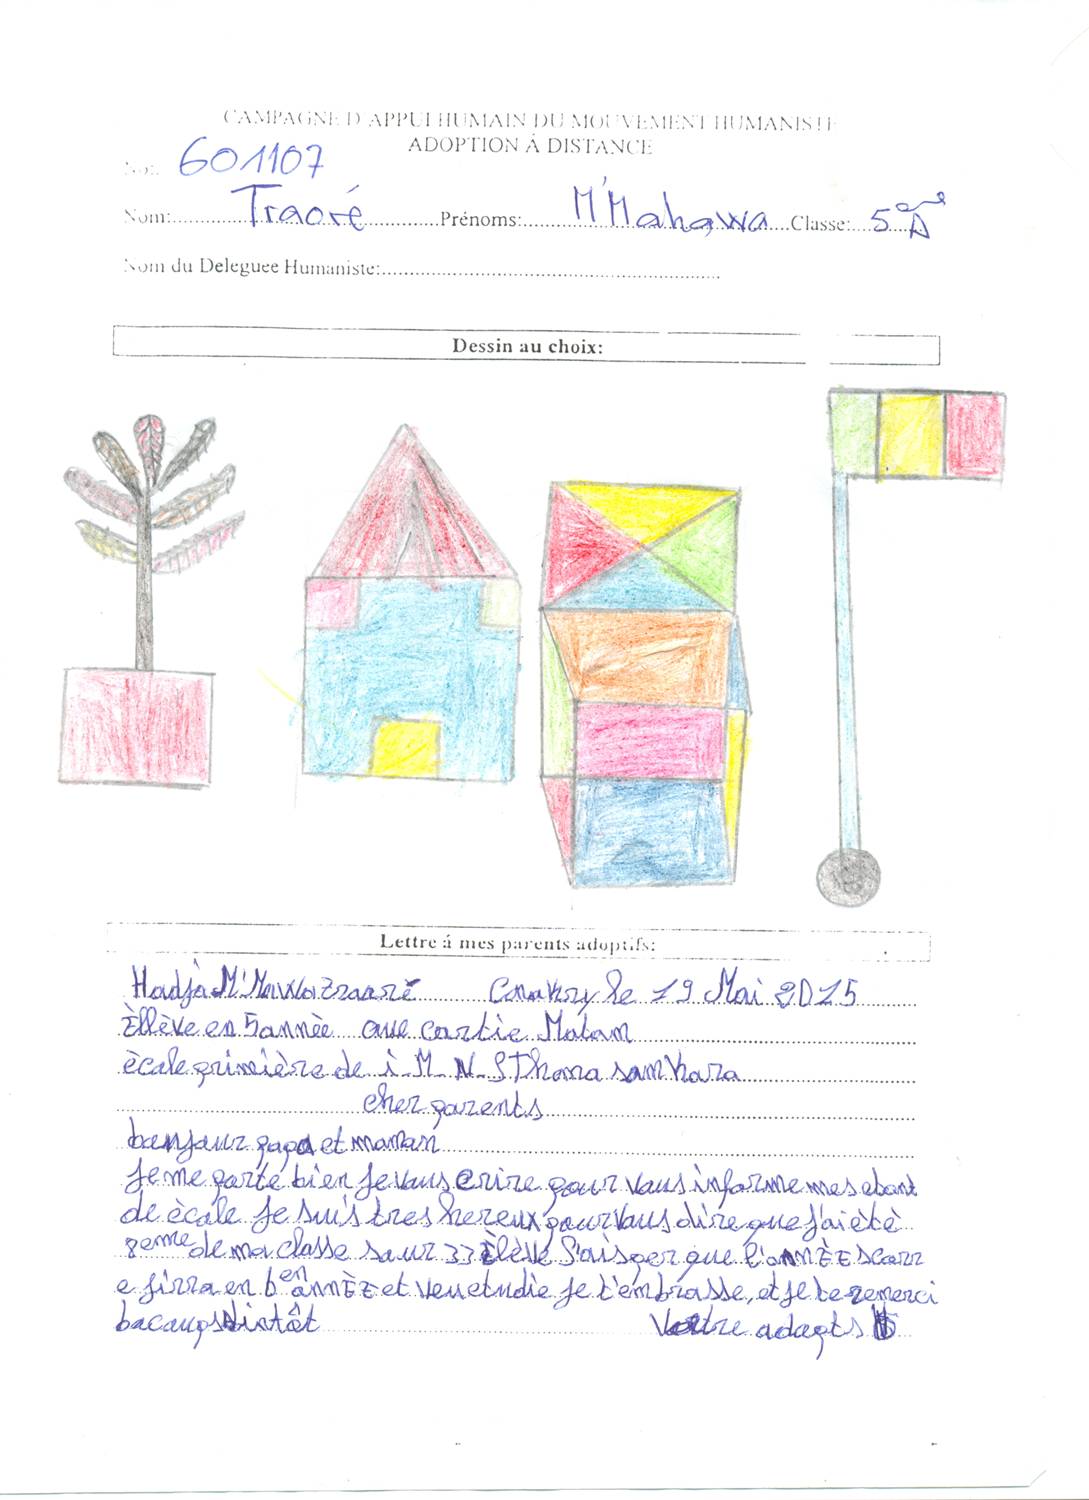 CAMPAGNE D'APPUI HUMAIN DU MOUVEMENT HUMANISTE
ADOPTION Á DISTANCE
No:. 601107
Nom: Traoré Prénoms: M'Mahawa Classe: 5eme A
Nom du Deleguee Humaniste:
Dessin au choix:
Lettre á mes parents adoptifs:
Hadja M'Mawa traorè Conakry le 19 Mai 2015
Èllève en 5annèe cartie Matam
ècole primière de i M N S Thoma sankara
cher parents
bonjour papa et maman
Je me porte bien Je vous ecrire pour vous informe mes
de ècole Je suis tres hereux pour vous dire que J'ai ètè
8eme de ma classe sour 33 Èlève que l'annÈE scorr
e en 6en annÈE et etudie Je t'embrasse, et Je te remerci
Votre adopts